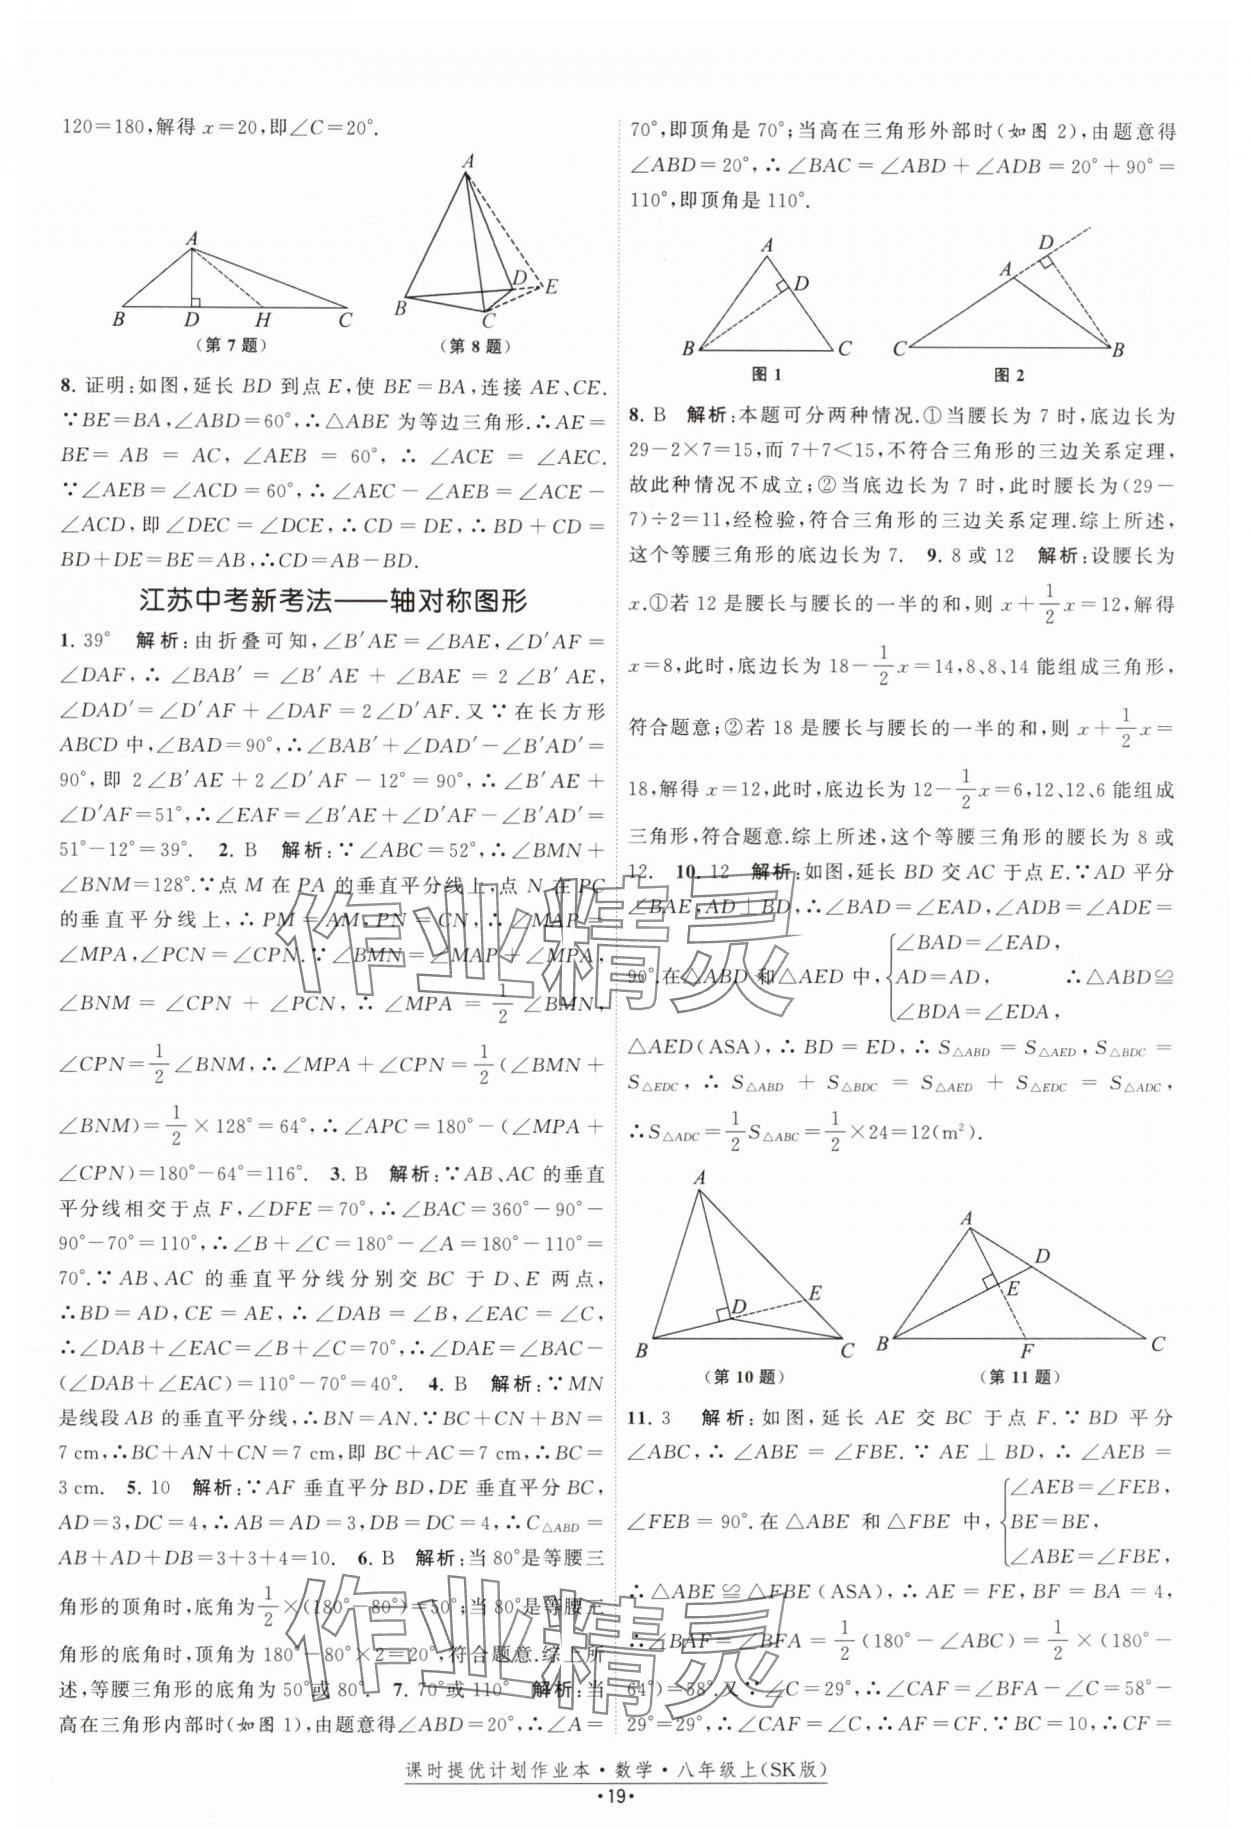 120=180,解得 x=20,即∠C=20°.
A
B D H C
(第 7 题)
A
B C D E
(第 8 题)
8. 证明:如图,延长 BD 到点 E,使 BE=BA,连接 AE、CE.
∵BE=BA,∠ABD=60°,∴△ABE 为等边三角形.∴AE=
BE= AB = AC, ∠AEB = 60°, ∴ ∠ACE = ∠AEC.
∵∠AEB=∠ACD=60°,∴∠AEC-∠AEB=∠ACE-
∠ACD,即∠DEC=∠DCE,∴CD=DE,∴BD+CD=
BD+DE=BE=AB,∴CD=AB-BD.
江苏中考新考法——轴对称图形
1. 39° 解析:由折叠可知,∠B′AE=∠BAE,∠D′AF=
∠DAF,∴∠BAB′=∠B′AE+∠BAE=2∠B′AE,
∠DAD′=∠D′AF+∠DAF=2∠D′AF.又∵在长方形
ABCD 中,∠BAD=90°,∴∠BAB′+∠DAD′-∠B′AD′=
90°,即 2∠B′AE+2∠D′AF-12°=90°,∴∠B′AE+
∠D′AF=51°,∴∠EAF=∠B′AE+∠D′AF-∠B′AD′=
51°-12°=39°. 2. B 解析:∵∠ABC=52°,∴∠BMN+
∠BNM=128°.∵点 M 在 PA 的垂直平分线上,点 N 在 PC
的垂直平分线上,∴PM=AM,PN=CN,∴∠MAP=
∠MPA,∠PCN=∠CPN.∵∠BMN=∠MAP+∠MPA,
∠BNM = ∠CPN + ∠PCN, ∴ ∠MPA = 1/2 ∠BMN,
∠CPN=1/2∠BNM,∴∠MPA+∠CPN=1/2(∠BMN+
∠BNM)=1/2×128°=64°,∴∠APC=180°-(∠MPA+
∠CPN)=180°-64°=116°. 3. B 解析:∵AB、AC 的垂直
平分线相交于点 F,∠DFE=70°,∴∠BAC=360°-90°-
90°-70°=110°,∴∠B+∠C=180°-∠A=180°-110°=
70°.∵AB、AC 的垂直平分线分别交 BC 于 D、E 两点,
∴BD=AD,CE=AE,∴∠DAB=∠B,∠EAC=∠C,
∴∠DAB+∠EAC=∠B+∠C=70°,∴∠DAE=∠BAC-
(∠DAB+∠EAC)=110°-70°=40°. 4. B 解析:∵MN
是线段 AB 的垂直平分线,∴BN=AN.∵BC+CN+BN=
7 cm,∴BC+AN+CN=7 cm,即 BC+AC=7 cm,∴BC=
3 cm. 5. 10 解析:∵AF 垂直平分 BD,DE 垂直平分 BC,
AD=3,DC=4,∴AB=AD=3,DB=DC=4,∴C△ABD=
AB+AD+DB=3+3+4=10. 6. B 解析:当 80°是等腰三
角形的顶角时,底角为1/2×(180°-80°)=50°;当 80°是等腰三
角形的底角时,顶角为 180°-80°×2=20°,符合题意.综上所
述,等腰三角形的底角为 50°或 80°. 7. 70°或 110° 解析:当
高在三角形内部时(如图 1),由题意得∠ABD=20°,∴∠A=
70°,即顶角是 70°;当高在三角形外部时(如图 2),由题意得
∠ABD=20°,∴∠BAC=∠ABD+∠ADB=20°+90°=
110°,即顶角是 110°.
A
D
B C
图 1
D
A
C B
图 2
8. B 解析:本题可分两种情况.①当腰长为 7 时,底边长为
29-2×7=15,而 7+7<15,不符合三角形的三边关系定理,
故此种情况不成立;②当底边长为 7 时,此时腰长为(29-
7)÷2=11,经检验,符合三角形的三边关系定理.综上所述,
这个等腰三角形的底边长为 7. 9. 8 或 12 解析:设腰长为
x.①若 12 是腰长与腰长的一半的和,则 x+1/2x=12,解得
x=8,此时,底边长为 18-1/2x=14,8、8、14 能组成三角形,
符合题意;②若 18 是腰长与腰长的一半的和,则 x+1/2x=
18,解得 x=12,此时,底边长为 12-1/2x=6,12、12、6 能组成
三角形,符合题意.综上所述,这个等腰三角形的腰长为 8 或
12. 10. 12 解析:如图,延长 BD 交 AC 于点 E.∵AD 平分
∠BAE,AD⊥BD,∴∠BAD=∠EAD,∠ADB=∠ADE=
90°.在△ABD 和△AED 中,{∠BAD=∠EAD, AD=AD, ∠BDA=∠EDA, ∴△ABD≌
△AED(ASA),∴BD=ED,∴S△ABD=S△AED,S△BDC=
S△EDC, ∴ S△ABD + S△BDC = S△AED + S△EDC = S△ADC,
∴S△ADC=1/2S△ABC=1/2×24=12(m²).
A
D E
B C
(第 10 题)
A
D
E
B F C
(第 11 题)
11. 3 解析:如图,延长 AE 交 BC 于点 F.∵BD 平分
∠ABC,∴∠ABE=∠FBE.∵AE⊥BD,∴∠AEB=
∠FEB=90°.在△ABE 和△FBE 中,{∠AEB=∠FEB, BE=BE, ∠ABE=∠FBE,
∴△ABE≌△FBE(ASA),∴AE=FE,BF=BA=4,
∴∠BAF=∠BFA=1/2(180°-∠ABC)=1/2×(180°-
64°)=58°.又∵∠C=29°,∴∠CAF=∠BFA-∠C=58°-
29°=29°,∴∠CAF=∠C,∴AF=CF.∵BC=10,∴CF=
作业精灵
作业精灵
课时提优计划作业本·数学·八年级上(SK版)
·19·